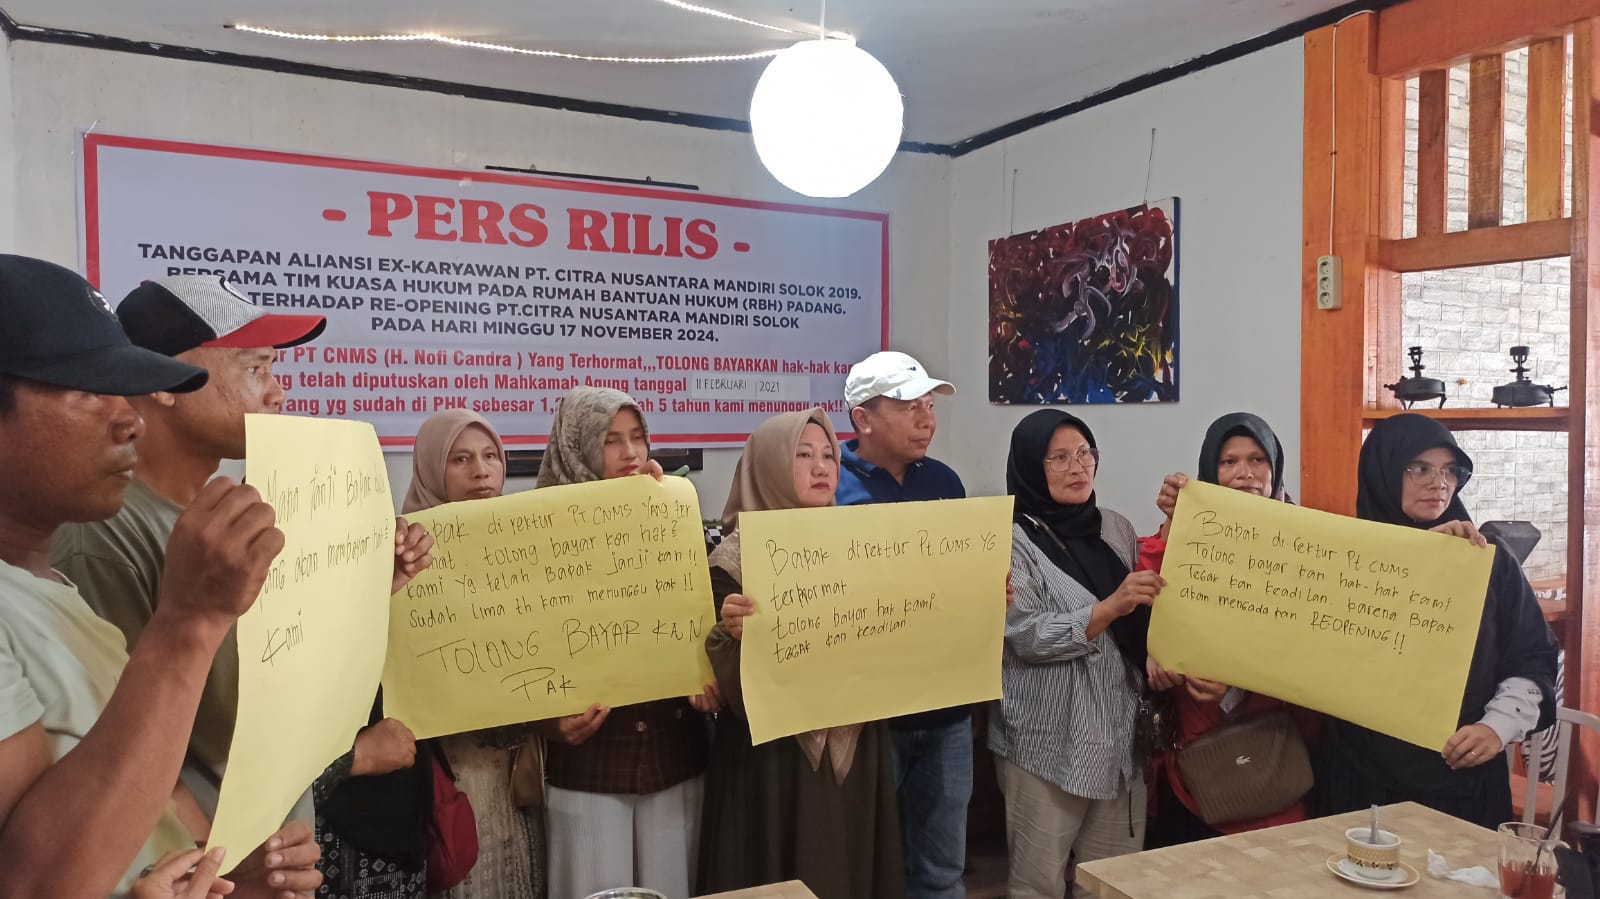 - PERS RILIS -
TANGGAPAN ALIANSI EX-KARYAWAN PT. CITRA NUSANTARA MANDIRI SOLOK 2019.
BERSAMA TIM KUASA HUKUM PADA RUMAH BANTUAN HUKUM (RBH) PADANG.
TERHADAP RE-OPENING PT.CITRA NUSANTARA MANDIRI SOLOK
PADA HARI MINGGU 17 NOVEMBER 2024.
PT CNMS (H. Nofi Candra ) Yang Terhormat,,,TOLONG BAYARKAN hak-hak
telah diputuskan oleh Mahkamah Agung tanggal 11 FEBRUARI 2021
yg sudah di PHK sebesar 5 tahun kami menunggu pak!!
Mana janji Bapak
yang akan membayar hak2
Kami
direktur PT CNMS Yang ter
tolong bayar kan hak2
kami yg telah Bapak janji kan !!
Sudah lima th kami menunggu pak !!
TOLONG BAYAR KAN
PAK
Bapak direktur Pt. CNMS YG
terhormat
tolong bayar hak kami
tegak kan keadilan.
Bapak direktur Pt CNMS
Tolong bayar kan hak-hak kami
Tegak kan keadilan. karena Bapak
akan mengada kan RE-OPENING!!